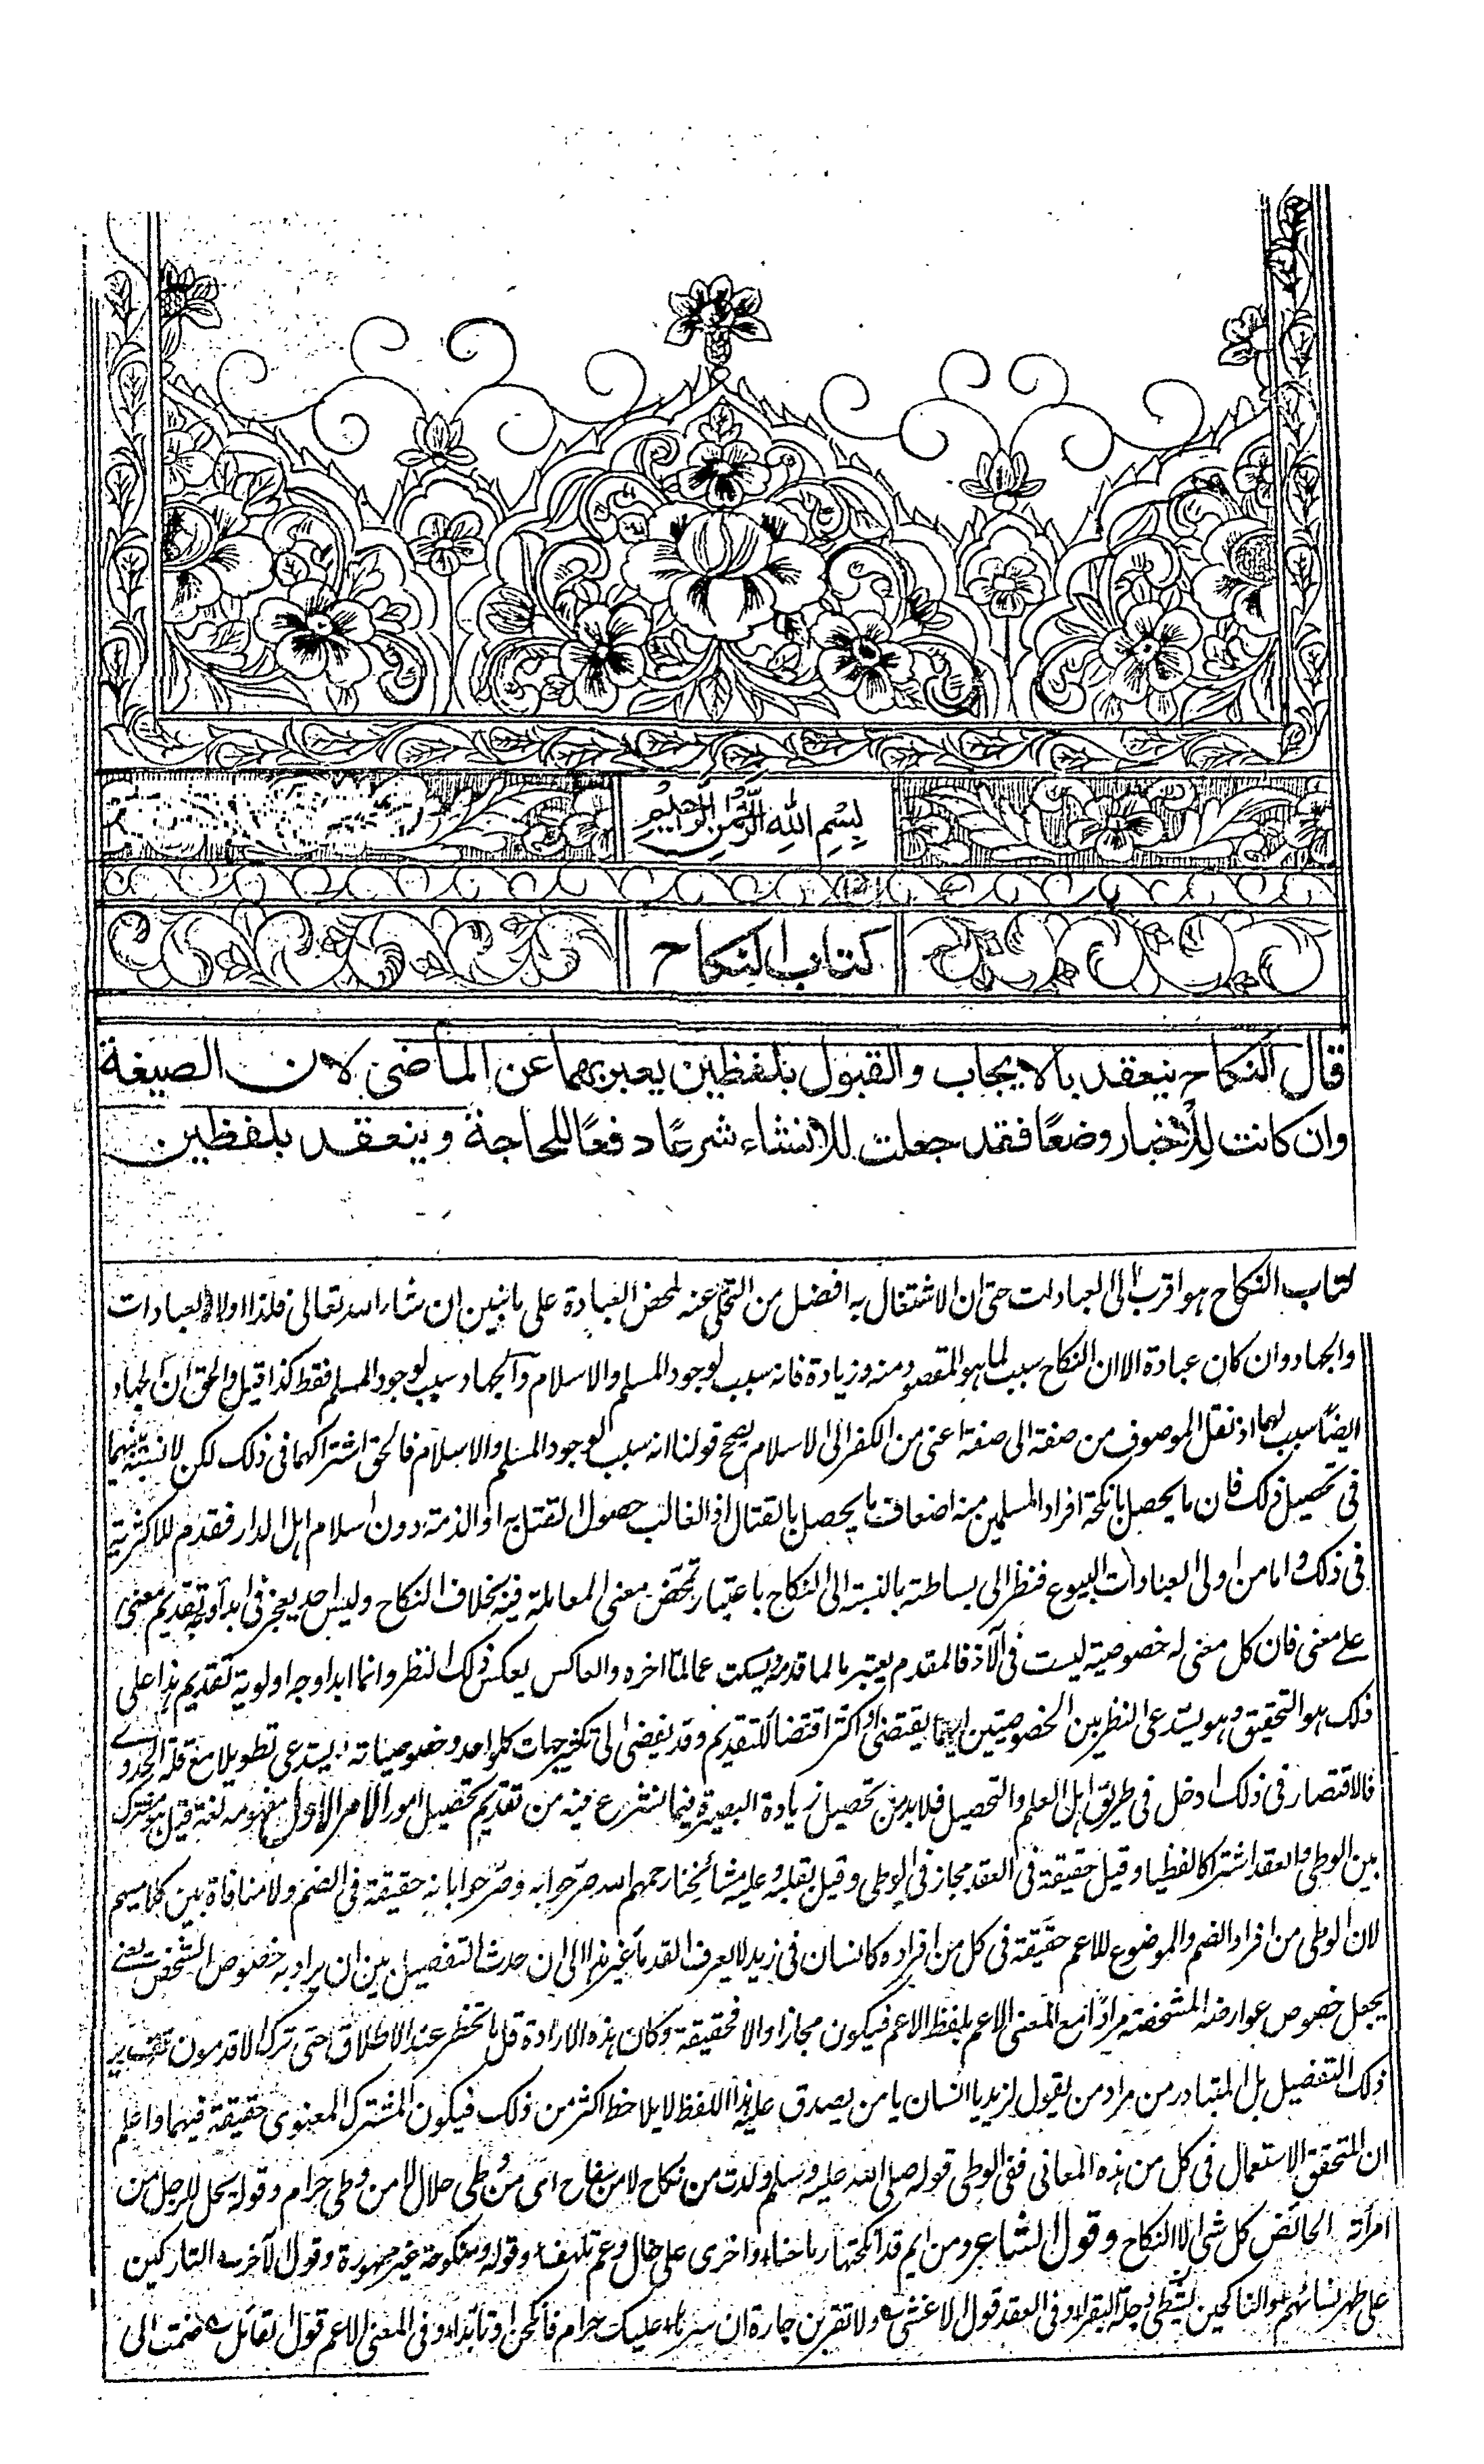 بسم الله الرحمن الرحيم
كتاب النكاح
قال النكاح ينعقد بالايجاب والقبول بلفظين يعبر بهما عن الماضى لان الصيغة
وان كانت للاخبار وضعًا فقد جعلت للانشاء شرعًا دفعًا للحاجة وينعقد بلفظين
كتاب النكاح هو اقرب الى العبادات حتى ان الاشتغال به افضل من التخلى عنه لمحض العبادة على ما نبين ان شاء الله تعالى فلذا اولاه العبادات
والجهاد وان كان عبادة الا ان النكاح سبب لما هو المقصود منه وزيادة فانه سبب لوجود المسلم والاسلام والجهاد سبب لوجود المسلم فقط كذا قيل والحق ان الجهاد
ايضًا سبب لهما اذ نقل الموصوف من صفة الى صفة اعنى من الكفر الى الاسلام يصح قولنا انه سبب لوجود المسلم والاسلام فالحق اشتراكهما فى ذلك لكن لا نسبة بينهما
فى تحصيل ذلك فان ما يحصل بانكحة افراد المسلمين منه اضعاف ما يحصل بالقتال اذ الغالب حصول القتل به او الذمة دون اسلام اهل الدار فقدم للاكثرية
فى ذلك واما من اولى العبادات البيوع فنظر الى بساطته بالنسبة الى النكاح باعتبار تمحض معنى المعاملة فيه بخلاف النكاح وليس احد يعجز فى ابداء وجه تقديم معنى
على معنى فان كل معنى له خصوصية ليست فى الآخر فالمقدم يعتبر ما لما قدمه ويسكت عما لما اخره والعاكس يعكس ذلك النظر وانما ابداء وجه اولوية تقديم هذا على
ذلك هو التحقيق وهو يستدعى النظر بين الخصوصيتين ايهما يقتضى او اكثر اقتضاء للتقديم وقد يفضى الى تكثير جهات كل واحد وخصوصياته ويستدعى تطويلا مع قلة الجدوى
فالاقتصار فى ذلك ادخل فى طريق اهل العلم والتحصيل فلا بد من تحصيل زيادة البصيرة فيما نشرع فيه من تقديم تحصيل امور الامر الاول مفهومه لغة قيل هو مشترك
بين الوطى والعقد اشتراكا لفظيا وقيل حقيقة فى العقد مجاز فى الوطى وقيل بقلبه وعليه مشائخنا رحمهم الله صرحوا به وصرحوا بانه حقيقة فى الضم ولا منافاة بين كلاميهم
لان الوطى من افراد الضم والموضوع للاعم حقيقة فى كل من افراده كانسان فى زيد لا يعرف القدماء غير هذا الى ان حدث التفصيل بين ان يراد به خصوص الشخص يعنى
يجعل خصوص عوارضه المشخصة مرادًا مع المعنى الاعم بلفظ الاعم فيكون مجازا والا فحقيقة وكان هذه الارادة قل ما تخطر عند الاطلاق حتى ترك الاقدمون تقدير
ذلك التفصيل بل المتبادر من مراد من يقول لزيد يا انسان يا من يصدق عليه هذا اللفظ لا يلاحظ اكثر من ذلك فيكون المشترك المعنوى حقيقة فيهما واعلم
ان المتحقق الاستعمال فى كل من هذه المعانى ففى الوطى قوله صلى الله عليه وسلم ولدت من نكاح لا من سفاح اى من وطى حلال لا من وطى حرام وقوله يحل للرجل من
امرأته الحائض كل شئ الا النكاح وقول الشاعر ومن ايم قد انكحتها رماحنا واخرى على خال وعم تلهف وقوله ومنكوحة غير ممهورة وقول الآخر التاركين
على طهر نسائهم والناكحين بشطى دجلة البقرا وفى العقد قول الاعشى ولا تقربن جارة ان سرها عليك حرام فانكحن او تأبدا وفى المعنى الاعم قول القائل ضممت الى